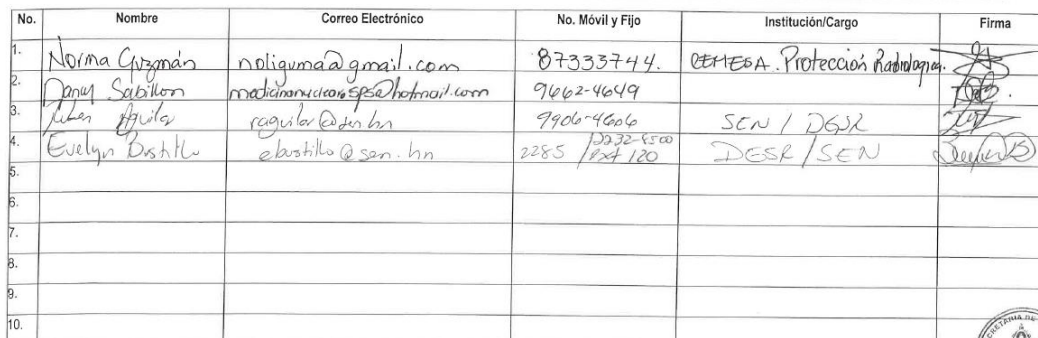 No. Nombre Correo Electrónico No. Móvil y Fijo Institución/Cargo Firma
1. Norma Guzmán noliguma@gmail.com 87333744. CEMESA. Protección Radiologica.
2. Danny Sabillon medicinanuclear.sps@hotmail.com 9662-4649
3. Aguilar raguilar@sen.hn 9906-4606 SEN / DGSR
4. Evelyn Bustillo ebustillo@sen.hn 2285 / 2232-8500 Ext 120 DESR/SEN
5.
6.
7.
8.
9.
10.